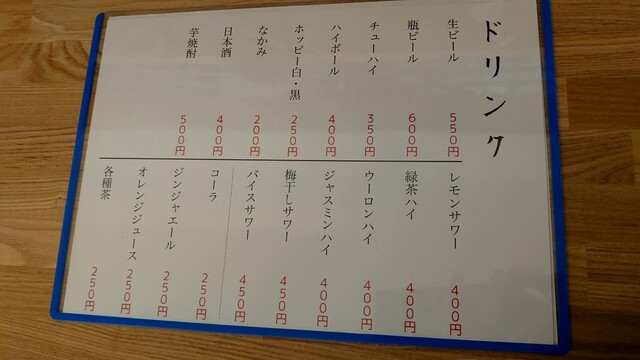 ドリンク
生ビール 550円
瓶ビール 600円
チューハイ 350円
ハイボール 400円
ホッピー白・黒 250円
なかみ 200円
日本酒 400円
芋焼酎 500円
レモンサワー 400円
緑茶ハイ 400円
ウーロンハイ 400円
ジャスミンハイ 400円
梅干しサワー 450円
バイスサワー 450円
コーラ 250円
ジンジャエール 250円
オレンジジュース 250円
各種茶 250円